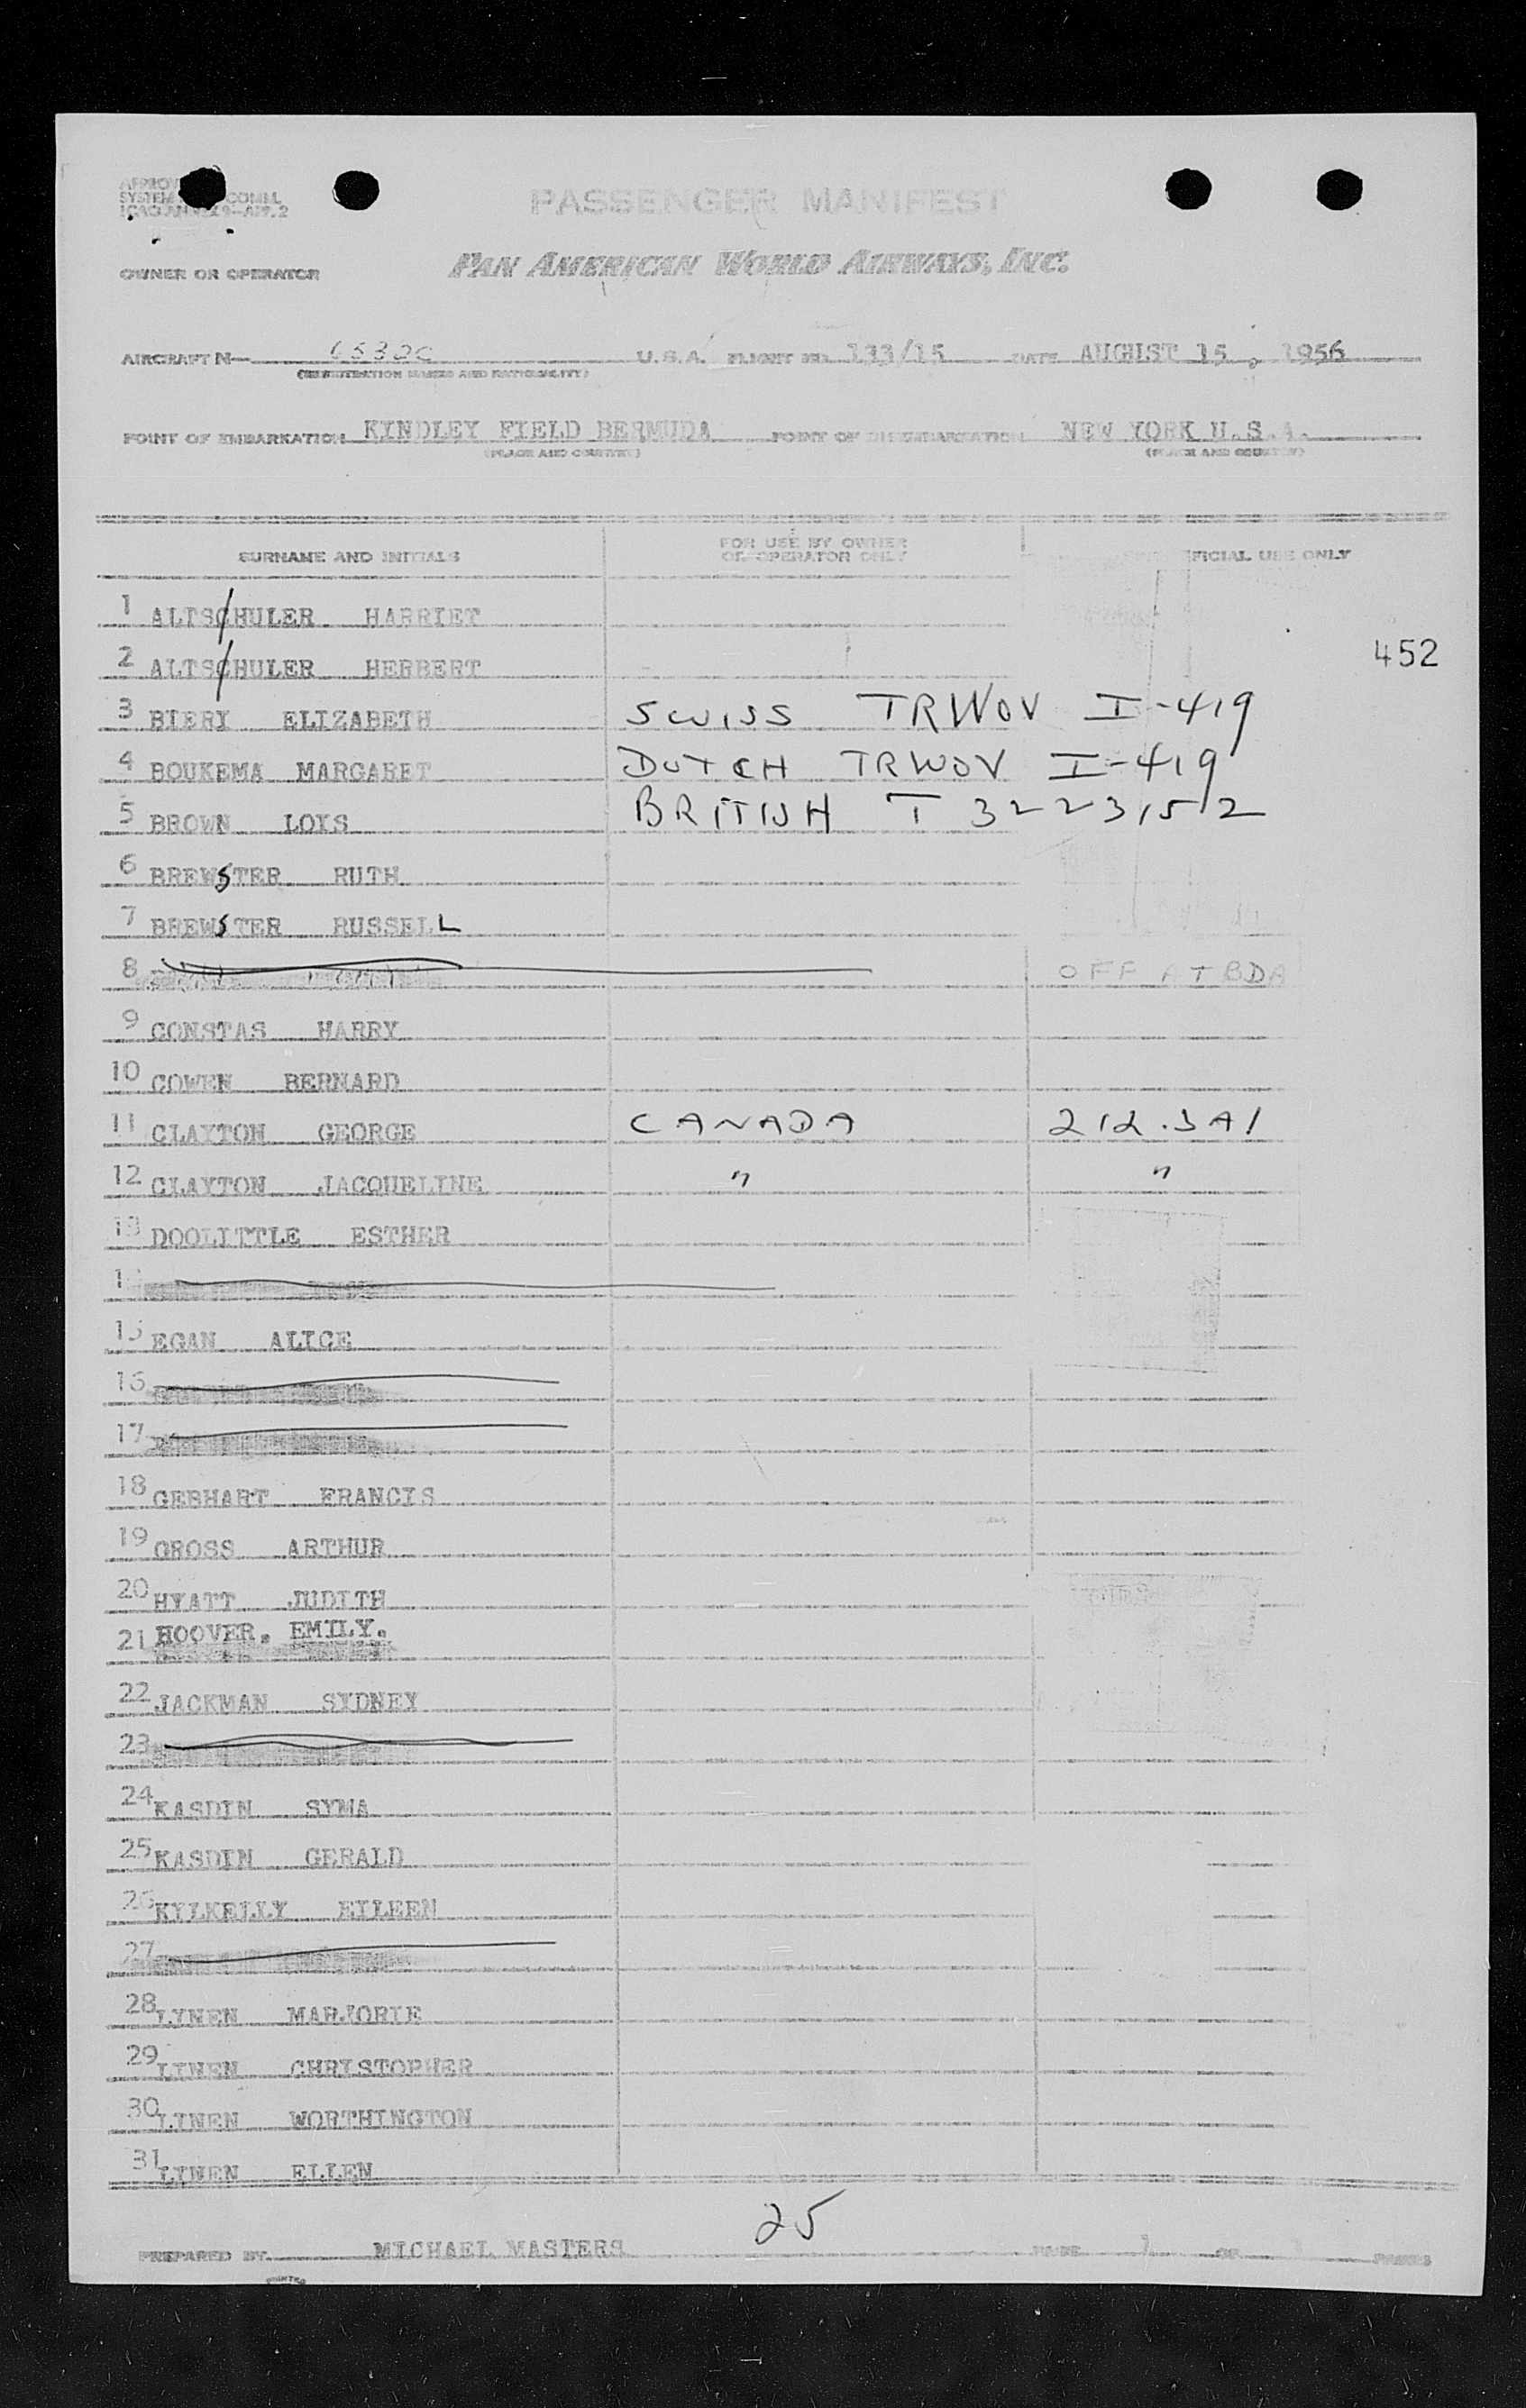 PASSENGER MANIFEST
OWNER OR OPERATOR PAN AMERICAN WORLD AIRWAYS, INC.
AIRCRAFT N— U.S.A. FLIGHT NO. 133/15 DATE AUGUST 15, 1956
(REGISTRATION MARKS AND NATIONALITY)
POINT OF EMBARKATION KINDLEY FIELD BERMUDA POINT OF DISEMBARKATION NEW YORK U.S.A.
(PLACE AND COUNTRY) (PLACE AND COUNTRY)
SURNAME AND INITIALS FOR USE BY OWNER OR OPERATOR ONLY FICIAL USE ONLY
1 ALTSCHULER HARRIET
2 ALTSCHULER HERBERT 452
3 BIERY ELIZABETH SWISS TRWOV I-419
4 BOUKEMA MARGARET DUTCH TRWOV I-419
5 BROWN LOYS BRITISH T 3223152
6 BREWSTER RUTH
7 BREWSTER RUSSELL
8 OFF AT BDA
9 CONSTAS HARRY
10 COWEN BERNARD
11 CLAYTON GEORGE CANADA 212.3A1
12 CLAYTON JACQUELINE " "
13 DOOLITTLE ESTHER
15 EGAN ALICE
16
17
18 GEBHART FRANCIS
19 GROSS ARTHUR
20 HYATT JUDITH
21 HOOVER. EMILY.
22 JACKMAN SYDNEY
23
24 KASDIN SYMA
25 KASDIN GERALD
26 KYLKELLY EILEEN
27
28 LYNEN MARJORIE
29 LINEN CHRISTOPHER
30 LINEN WORTHINGTON
31 LINEN ELLEN
25
PREPARED BY MICHAEL MASTERS PAGE 1 OF PAGES